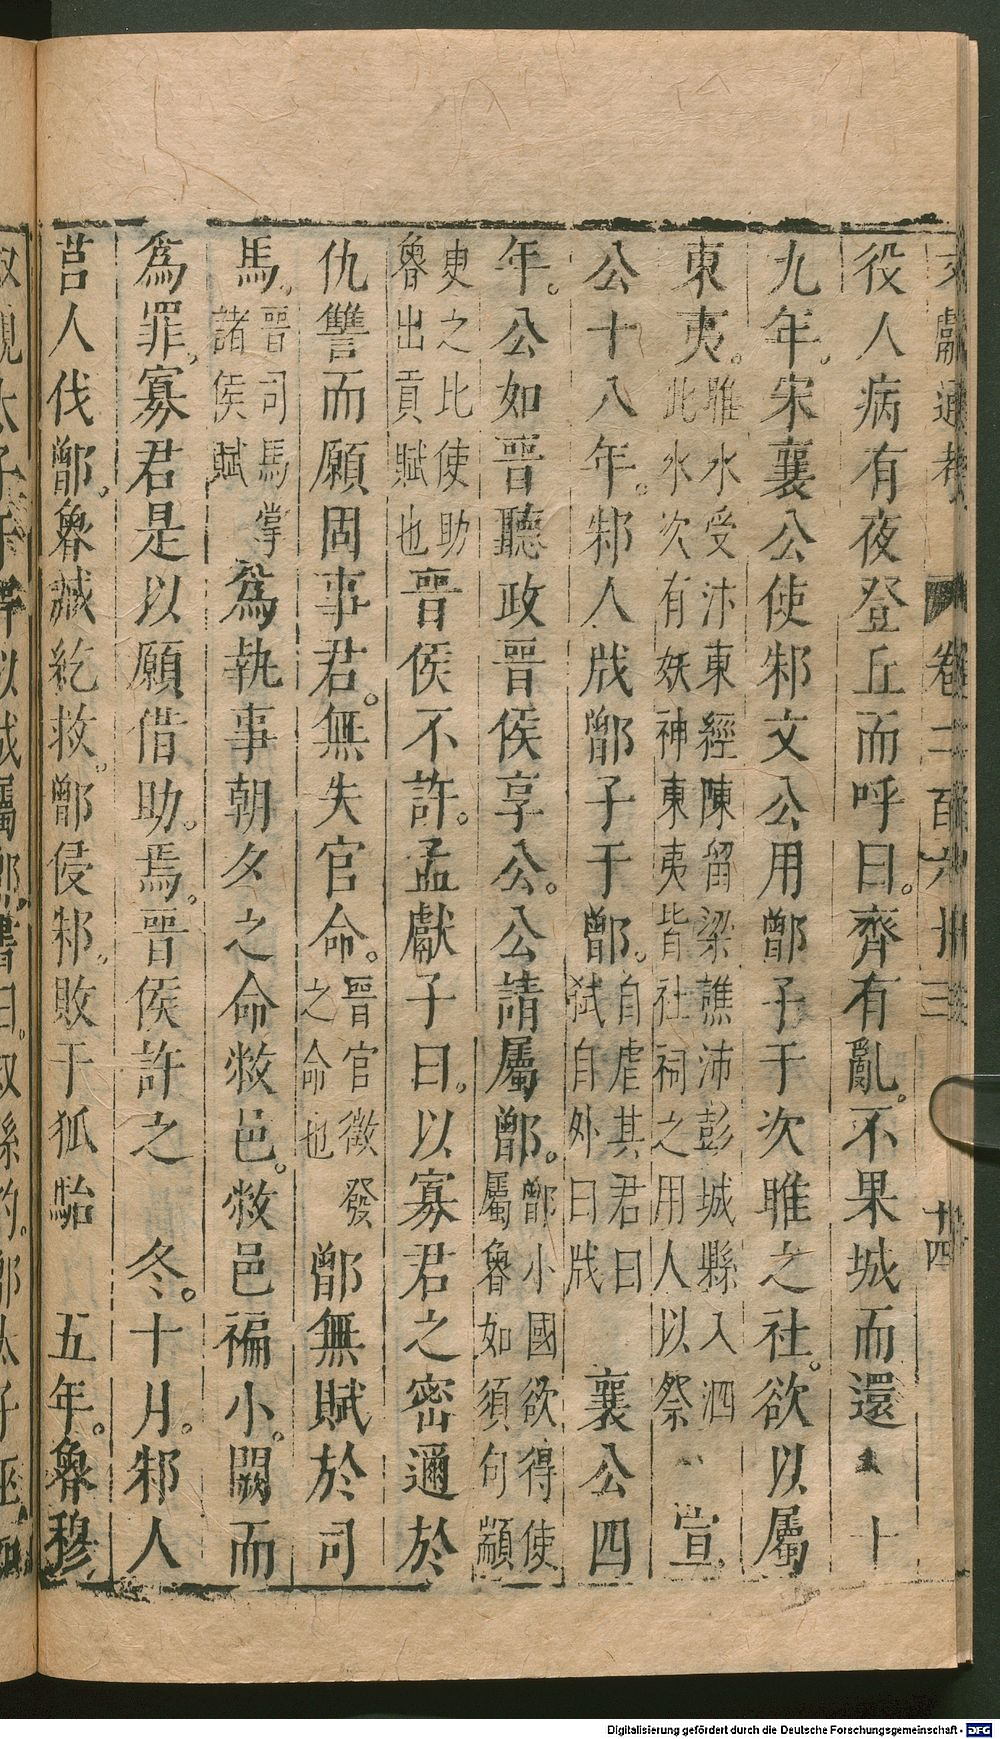 文獻通考 卷二百六十三 十四
役人病有夜登丘而呼曰。齊有亂。不果城而還 十
九年。宋襄公使邾文公用鄫子于次睢之社。欲以屬
東夷。睢水受汴東經陳留梁譙沛彭城縣入泗此水次有妖神東夷皆社祠之用人以祭 宣
公十八年。邾人戕鄫子于鄫。自虐其君曰弑自外曰戕 襄公四
年。公如晉聽政晉侯享公。公請屬鄫。鄫小國欲得使屬魯如須句顓
臾之比使助魯出貢賦也晉侯不許。孟獻子曰。以寡君之密邇於
仇讐而願固事君。無失官命。晉官徵發之命也鄫無賦於司
馬。晉司馬掌諸侯賦為執事朝夕之命敝邑。敝邑褊小。闕而
為罪。寡君是以願借助。焉。晉侯許之 冬。十月。邾人
莒人伐鄫。魯誠紇救。鄫侵邾。敗于狐駘 五年。魯穆
Digitalisierung gefördert durch die Deutsche Forschungsgemeinschaft - DFG